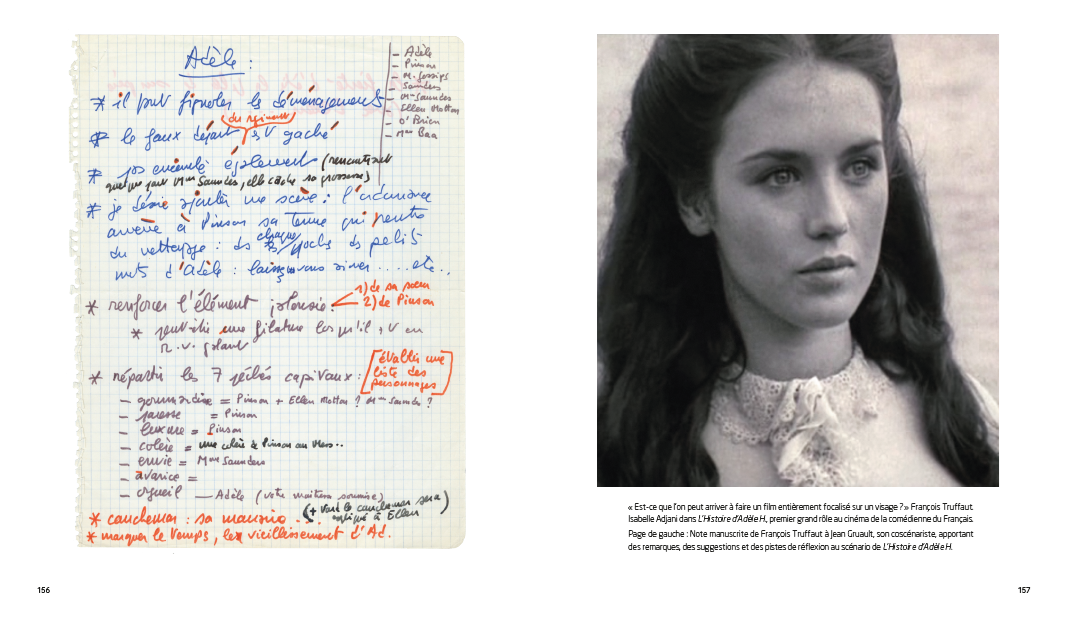 Adèle :
— Adèle
— Pinson
— M. Jessips
— Saunders
— Mme Saunders
— Ellen Motton
— O'Brien
— Mme Baa
* il faut fignoler le déménagement
(du régiment)
* le faux départ gaché
* également (rencontrant
quelque part Mme Saunders, elle cache sa grossesse)
* je désire ajouter une scène : l'ordonnance
amène à Pinson sa tenue qui rentre
du nettoyage : ds chaque poche ds petits
mots d'Adèle : laissez vous aimer .... etc..
* renforcer l'élément jalousie.
1) de sa sœur
2) de Pinson
* peut-être une filature lorsqu'il + V en
R.V. galant
* répartir les 7 péchés capitaux :
[établir une
liste des
personnages]
— gourmandise = Pinson + Ellen Motton ? Mme Saunders ?
— paresse = Pinson
— luxure = Pinson
— colère = une colère à Pinson au Mess..
— envie = Mme Saunders
— avarice =
— orgueil — Adèle (votre maîtresse soumise)
* cauchemar : sa maison ...
(+ tard le cauchemar sera
expliqué à Ellen)
* marquer le temps, le vieillissement d'Ad.
« Est-ce que l'on peut arriver à faire un film entièrement focalisé sur un visage ? » François Truffaut
Isabelle Adjani dans L'Histoire d'Adèle H., premier grand rôle au cinéma de la comédienne du Français.
Page de gauche : Note manuscrite de François Truffaut à Jean Gruault, son coscénariste, apportant
des remarques, des suggestions et des pistes de réflexion au scénario de L'Histoire d'Adèle H.
156
157